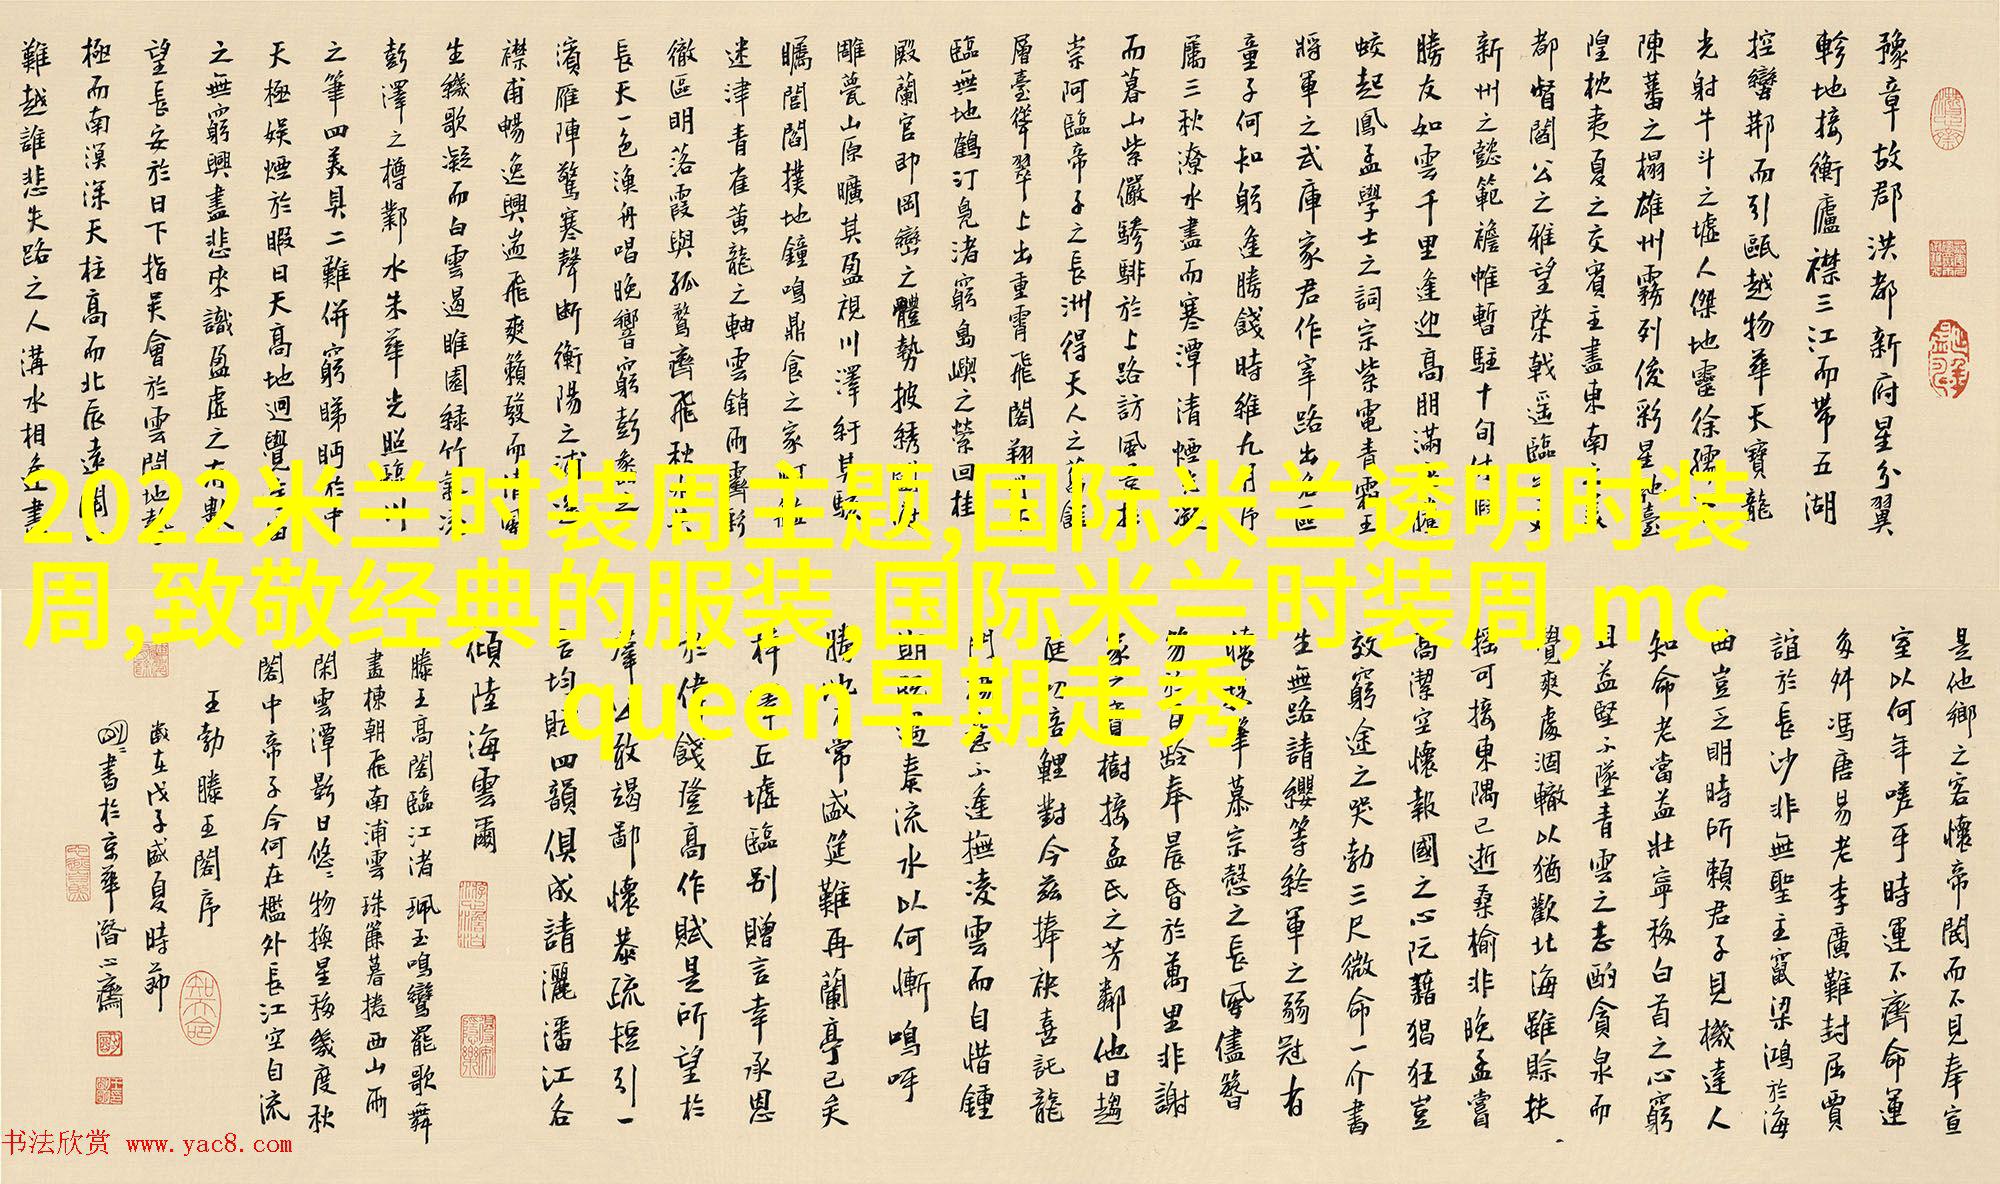 豫章故郡洪都新府星分翼
軫地接衡廬襟三江而帶五湖
控蠻荊而引甌越物華天寶龍
光射牛斗之墟人傑地靈徐孺
陳蕃之榻雄州霧列俊彩星馳臺
隍枕夷夏之交賓主盡東南
都督閻公之雅望棨戟遥臨
新州之懿範襜帷暫駐十旬休假
勝友如雲千里逢迎高朋滿座騰
蛟起鳳孟學士之詞宗紫電青霜王
將軍之武庫家君作宰路出名區
童子何知躬逢勝餞時維九月序
屬三秋潦水盡而寒潭清煙光凝
而暮山紫儼驂騑於上路訪風景於
崇阿臨帝子之長洲得天人之舊館
層臺聳翠上出重霄飛閣翔丹下
臨無地鶴汀鳧渚窮島嶼之縈回桂
殿蘭宮即岡巒之體勢披綉闥俯
雕甍山原曠其盈視川澤紆其駭
矚閭閻撲地鐘鳴鼎食之家舸艦
迷津青雀黃龍之軸雲銷雨霽彩
徹區明落霞與孤鶩齊飛秋水共
長天一色漁舟唱晚響窮彭蠡之
濱雁陣驚寒聲断衡陽之浦遥
襟甫暢逸興遄飛爽籟發而清風
生纖歌凝而白雲遏睢園緑竹氣凌
彭澤之樽鄴水朱華光照臨川
之筆四美具二難併窮睇眄於中
天極娱煙於暇日天高地迥覺宇宙
之無窮興盡悲来識盈虛之有數
望長安於日下指吴會於雲間地勢
極而南溟深天柱高而北辰遠關
難越誰悲失路之人溝水相逢盡
2022米兰时装周主题,国际米兰透明时装
周,致敬经典的服装,国际米兰时装周,mc
queen早期走秀
是他鄉之客懷帝閽而不見奉宣
室以何年嗟乎時運不齊命運
多舛馮唐易老李廣難封屈賈
誼於長沙非無聖主竄梁鴻於海
曲豈乏明時所賴君子見機達人
知命老當益壯寧移白首之心窮
且益堅不墜青雲之志酌貪泉而
覺爽處涸轍以猶歡北海雖賒扶
摇可接東隅已逝桑榆非晚孟嘗
高潔空懷報國之心阮藉猖狂豈
效窮途之哭勃三尺微命一介書
生無路請纓等終軍之弱冠有
懷投筆慕宗慤之長風儘簪
笏於百齡奉晨昏於萬里非謝
家之寶樹接孟氏之芳鄰他日趨
庭叨陪鯉對今兹捧袂喜託龍
門楊意不逢撫凌雲而自惜鍾
期既遇奏流水以何慚嗚呼
勝地不常盛筵難再蘭亭已矣
梓澤丘墟臨别贈言幸承恩
於偉餞登高作賦是所望於
群公敢竭鄙懷恭疏短引一
言均賦四韻俱成請灑潘江各
傾陸海雲爾
滕王高閣臨江渚珮玉鳴鸞罷歌舞
畫棟朝飛南浦雲珠簾暮捲西山雨
閑雲潭影日悠悠物換星移幾度秋
閣中帝子今何在檻外長江空自流
王勃滕王閣序
歲在戊子盛夏時節
書於京華潛心齋
书法欣赏 www.yac8.com